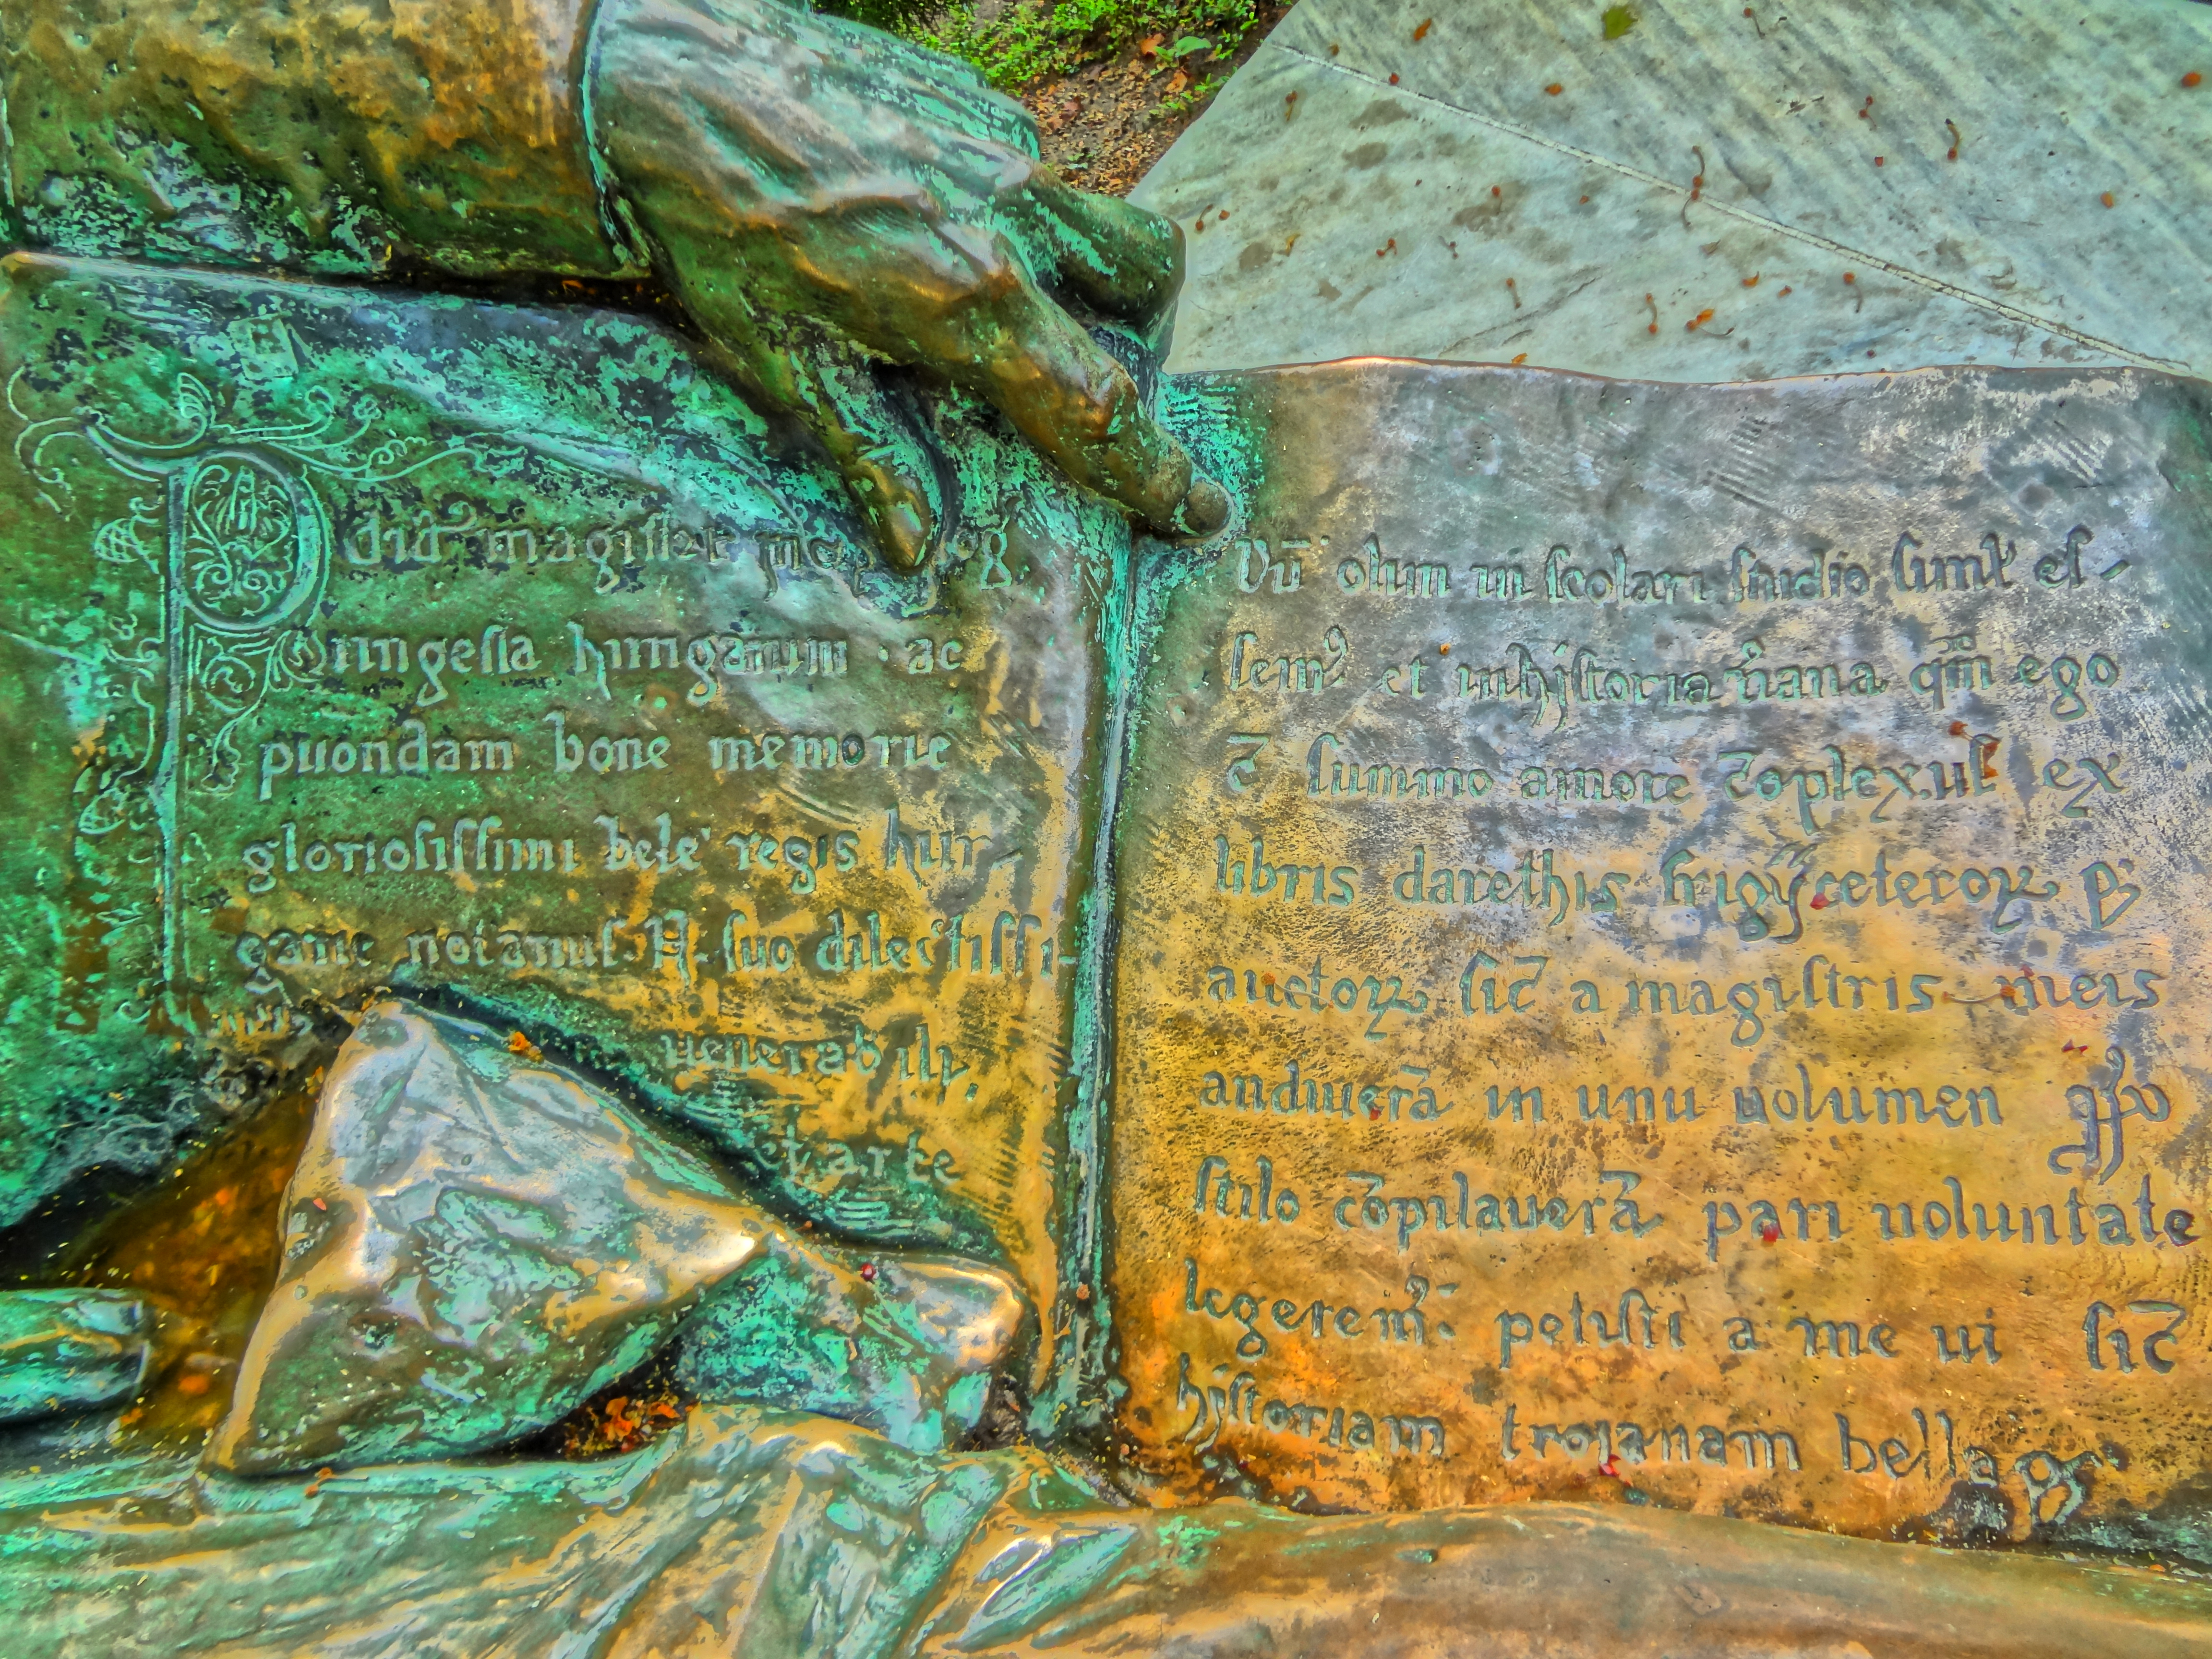 Pdict magister
gesta hungarum ac
puondam bone memorie
gloriosissimi bele regis hun-
garie notarius. P. suo dilectissi-
uenerabili,
et arte
Dū olim in scolari studio siml es-
sem⁹ et inhystoria
ego
c̄ summo amore c̄oplexus ex
libris darethis frigy ceteroꝝ
auctoꝝ sic̄ a magistris meis
audiuerā in unu uolumen
stilo cōpilauerā pari uoluntate
legerem⁹. petisti a me ut sic̄
hystoriam trojanam bella